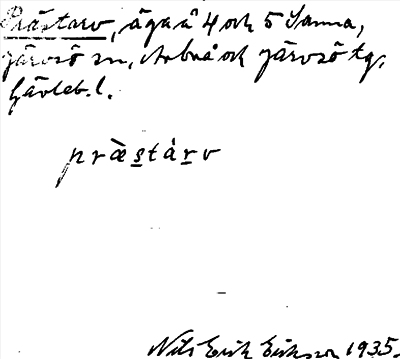 Prästarv, äga å 4 och 5 Sanna,
Järvsö sn, Arbrå och Järvsö tg,
Gävleb. l.
præ̀stárv
Nils Erik Eriksson 1935.